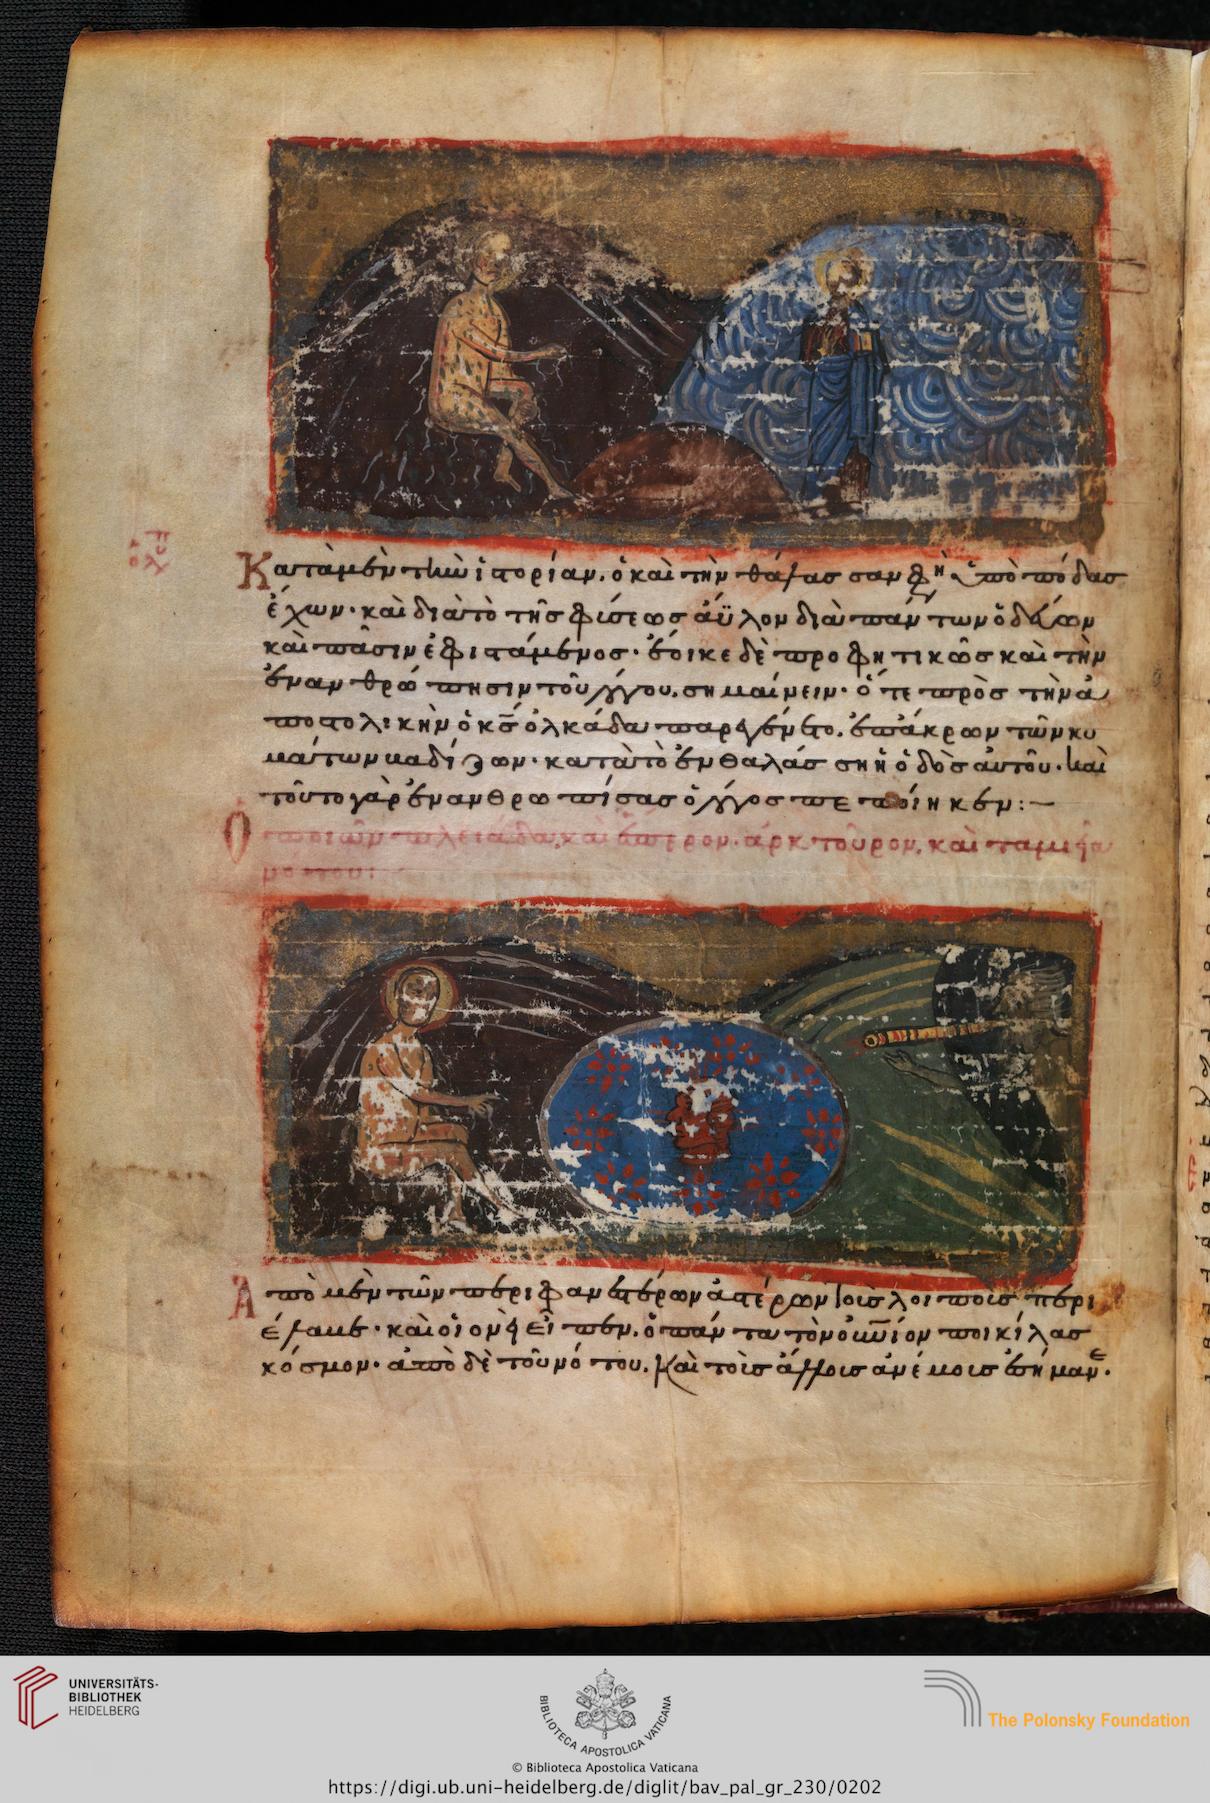 Κατὰ μὲν τὴν ἱστορίαν, ὁ καὶ τὴν θάλασσαν ὑπὸ πόδας
ἔχων· καὶ διὰ τὸ τῆς φύσεως ἄϋλον διὰ πάντων ὁδεύων
καὶ πᾶσιν ἐφιστάμενος· ἔοικε δὲ προφητικῶς καὶ τὴν
ἐνανθρώπησιν τοῦ λόγου, σημαίνειν· ὅτε πρὸς τὴν ἀ
ποστολικὴν ὁ κς ὁλκάδα παρεγένετο, ἐπ' ἄκρων τῶν κυ
μάτων βαδίζων· κατὰ τὸ ἐν θαλάσση ἡ ὁδὸς αὐτοῦ· καὶ
τοῦτο γὰρ ἐνανθρωπίσας ὁ λόγος πεποίηκεν:—
Ὁ ποιῶν πλειάδα, καὶ ἕσπερον, ἀρκτοῦρον, καὶ ταμιεῖα
νότου:
Ἀπὸ μὲν τῶν περιφανεστέρων ἀστέρων τοὺς λοιποὺς περι
έλαβε· καὶ οἱονεὶ εἶπεν, ὁ πάντα τὸν οὐνίον ποικίλας
κόσμον· ἀπὸ δὲ τοῦ νότου, καὶ τοὺς ἄλλους ἀνέμους ἐσήμανε.
UNIVERSITÄTS-
BIBLIOTHEK
HEIDELBERG
BIBLIOTECA APOSTOLICA VATICANA
The Polonsky Foundation
© Biblioteca Apostolica Vaticana
https://digi.ub.uni-heidelberg.de/diglit/bav_pal_gr_230/0202